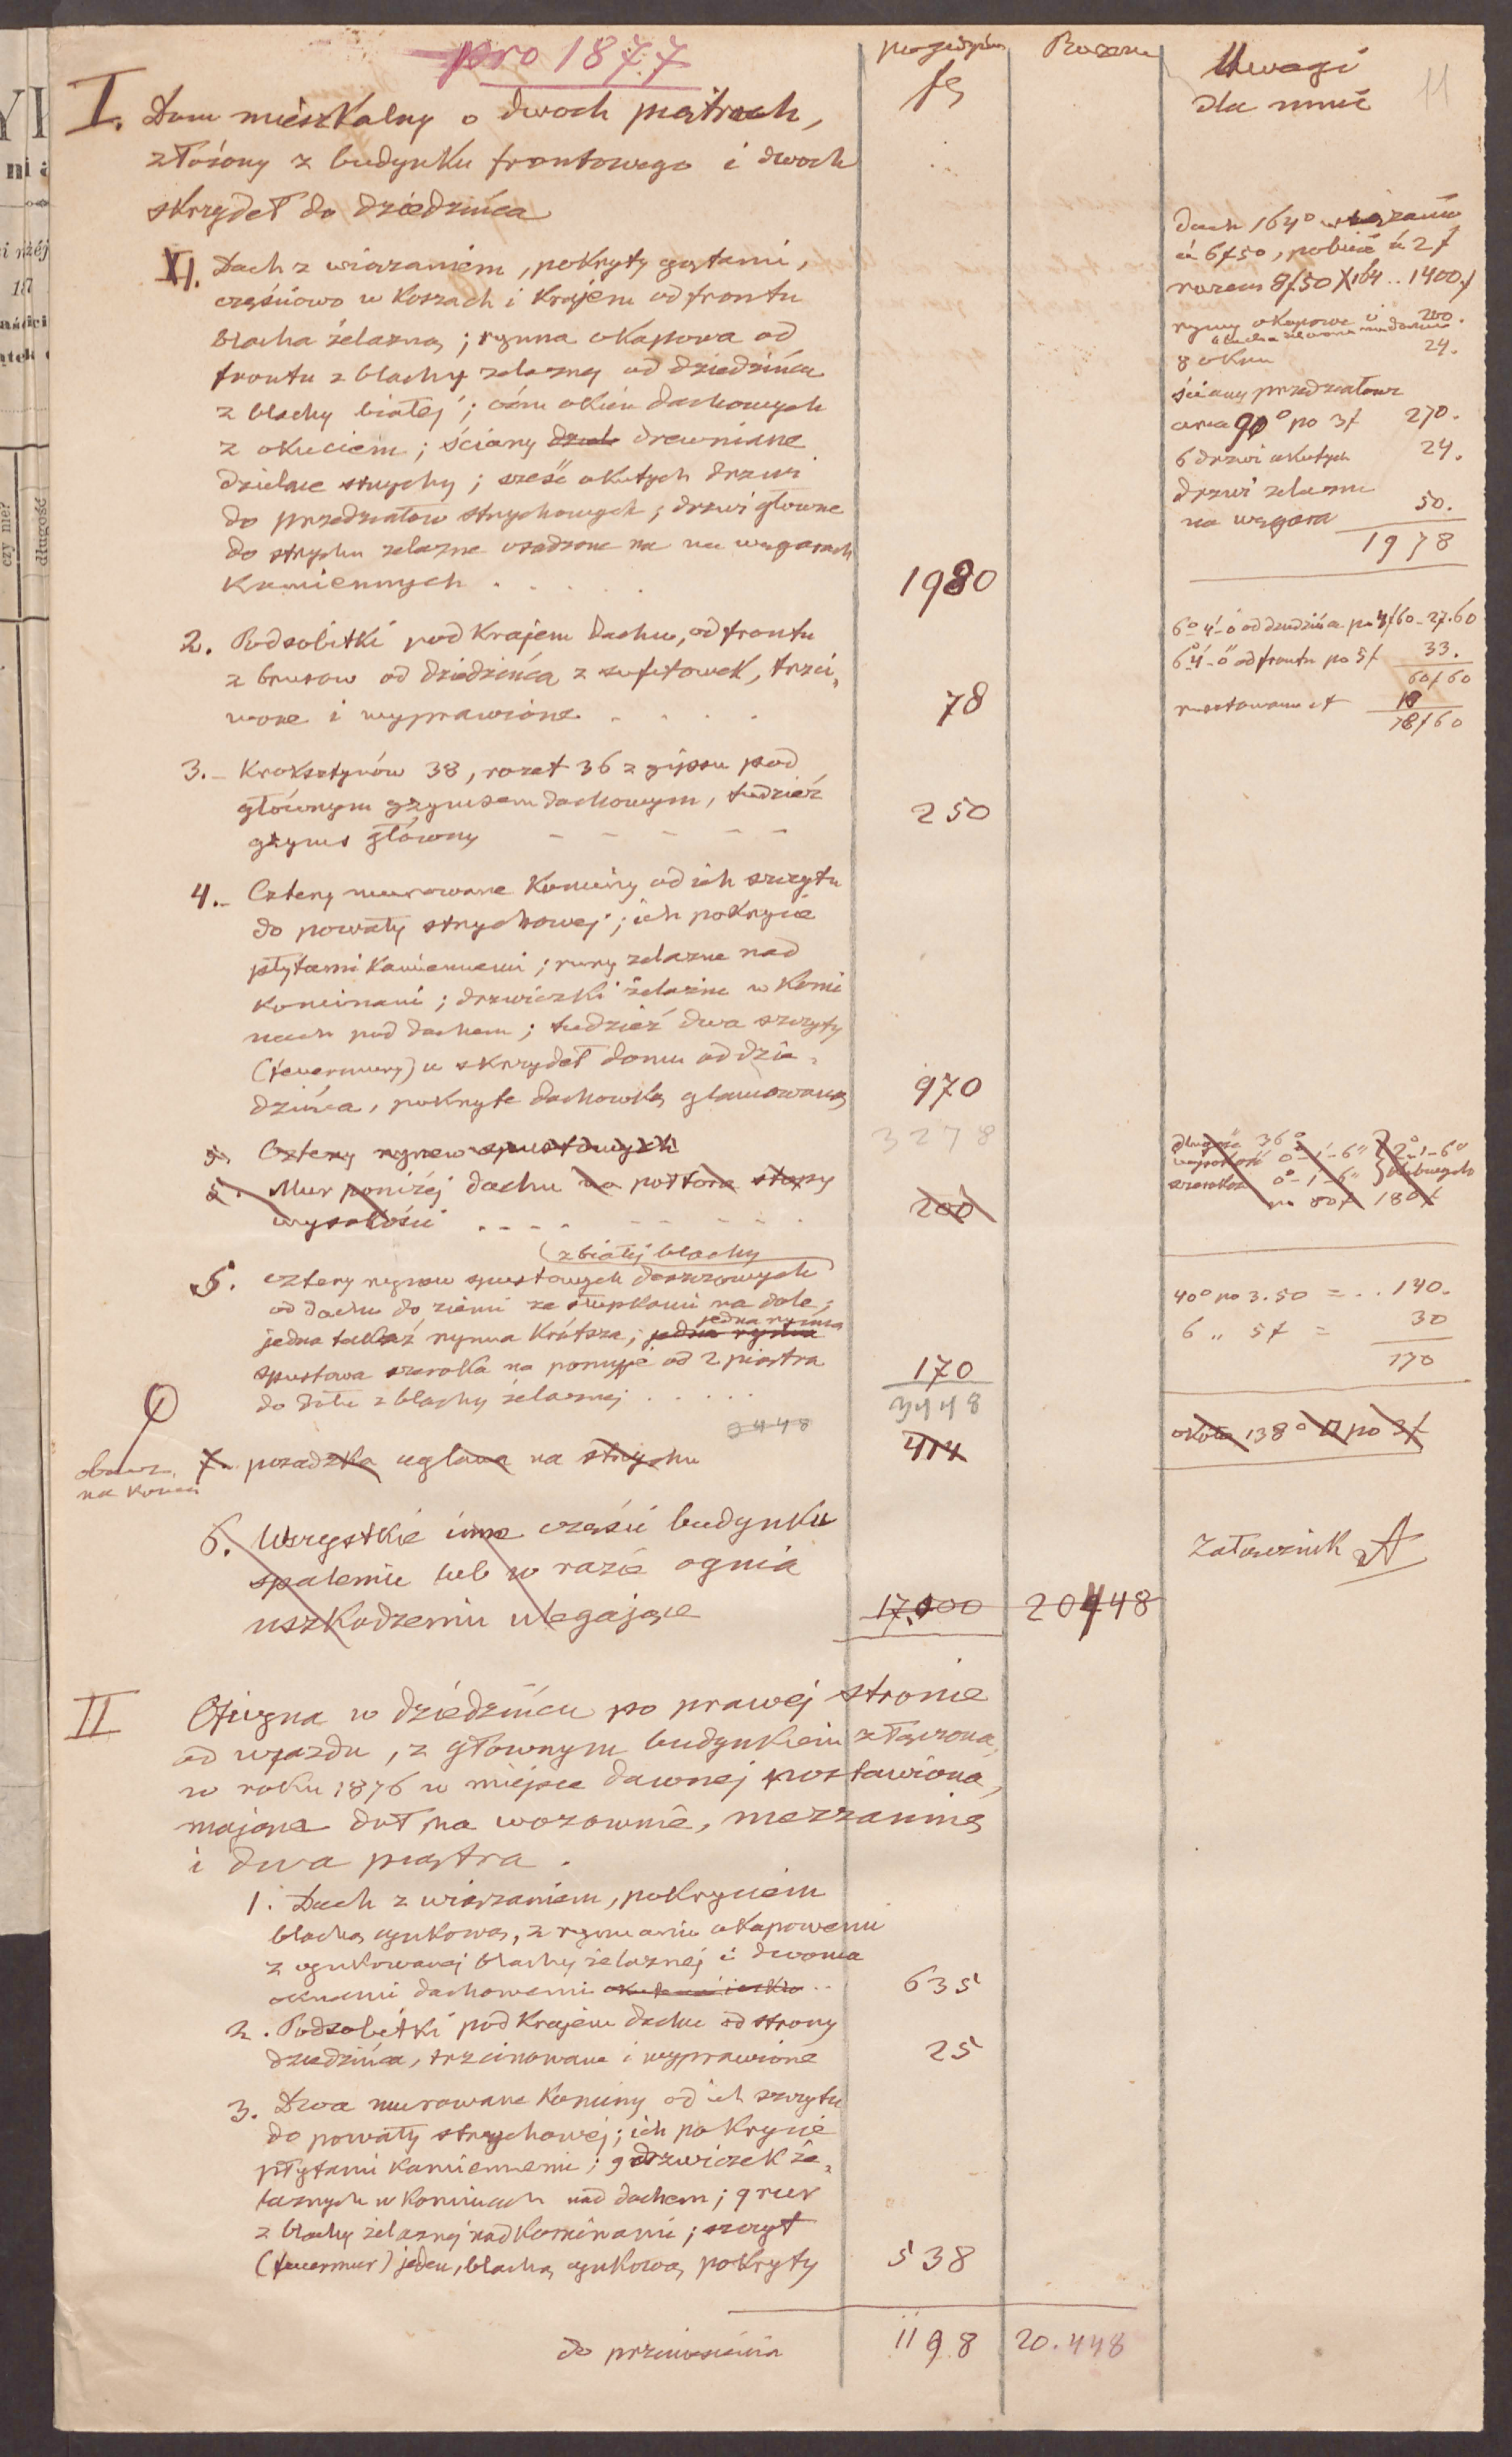 pro 1877
pojedyńczo
Razem
Uwagi
dla mnie
11
fl
I. Dom mieszkalny o dwoch piętrach,
złożony z budynku frontowego i dwoch
skrzydeł do dziedzińca
1. Dach z wiązaniem, pokryty gątami,
częściowo w koszach i krajem od frontu
blacha żelazną; rynna okapowa od
frontu z blachy żelaznej od dziedzińca
z blachy białej; ośm okien dachowych
z okuciem; ściany drewniane
dzielące strychy; sześć okutych drzwi
do przedziałow strychowych; drzwi głowne
do strychu żelazne osadzone na na węgarach
kamiennych . . . . . 1980
dach 164° wiązanie
à 6f50, pobicie à 2f
razem 8f.50 X 164 .. 1400f
rynny okapowe i 200.
8 okien 24.
ściany przedziałowe
90° po 3f 270.
6 drzwi okutych 24.
drzwi żelazne
na węgara 50.
1978
2. Podsobitki pod krajem dachu, od frontu
z brusow od dziedzińca z sufitowek, trzci,
wone i wyprawione . . . . 78
6°-4'-0 od dziedzińca po 4f60 - 27.60
6°-4'-0" od frontu po 5f 33.
60f60
18
78f60
3. Kroksztynów 38, rozet 36 z gipsu pod
głównym gzymsem dachowym, tudzież
gzyms główny - - - - - 250
4. Cztery murowane kominy od ich szczytu
do powały strychowej; ich pokrycie
płytami kamiennemi; rury żelazne nad
kominami; drzwiczki żelazne w komi
nach pod dachem; tudzież dwa szczyty
(feuermury) u skrzydeł domu od dzie-
dzińca, pokryte dachowką glazurowaną 970
3278
5. Cztery rynew spustowych
5. Mur poniżej dachu na połtora stopy
wysokości . . . . - - - - - . 200
długość 36°
wysokość 0-1'-6"
szerokość 0°-1'-6"
2°-1'-6"
po 80f 180f
(z białej blachy
5. cztery rynew spustowych deszczowych
od dachu do ziemi ze słupkami na dole;
jedna rynna
jedna takaż rynna krótsza; jedna rynna
spustowa szeroka na pomyje od 2 piętra
do dołu z blachy żelaznej . . . . . 170
40° po 3.50 = . . 140.
6 „ 5f = 30
170
3448
3448
obacz
na końcu
7. posadzka ceglana na strychu 414
około 138° □ po 3f
6. Wszystkie inne części budynku
spaleniu lub w razie ognia
uszkodzeniu ulegające 17.000 20448
Załącznik A
II Oficyna w dziedzińcu po prawej stronie
od wjazdu, z głownym budynkiem złączona,
w roku 1876 w miejsce dawnej postawiona,
mająca doł na wozownie, mezzaninę
i dwa piętra.
1. Dach z wiązaniem, pokryciem
blachą cynkową, z rynnami okapowemi
z cynkowanej blachy żelaznej i dwoma
oknami dachowemi .. 635
2. Podsobitki pod krajem dachu od strony
dziedzińca, trzcinowane i wyprawione 25
3. Dwa murowane kominy od ich szczytu
do powały strychowej; ich pokrycie
płytami kamiennemi; 9 drzwiczek że-
laznych w kominach nad dachem; 9 rur
z blachy żelaznej nad kominami; szczyt
(feuermur) jeden, blachą cynkową pokryty 538
do przeniesienia 1198 20.448